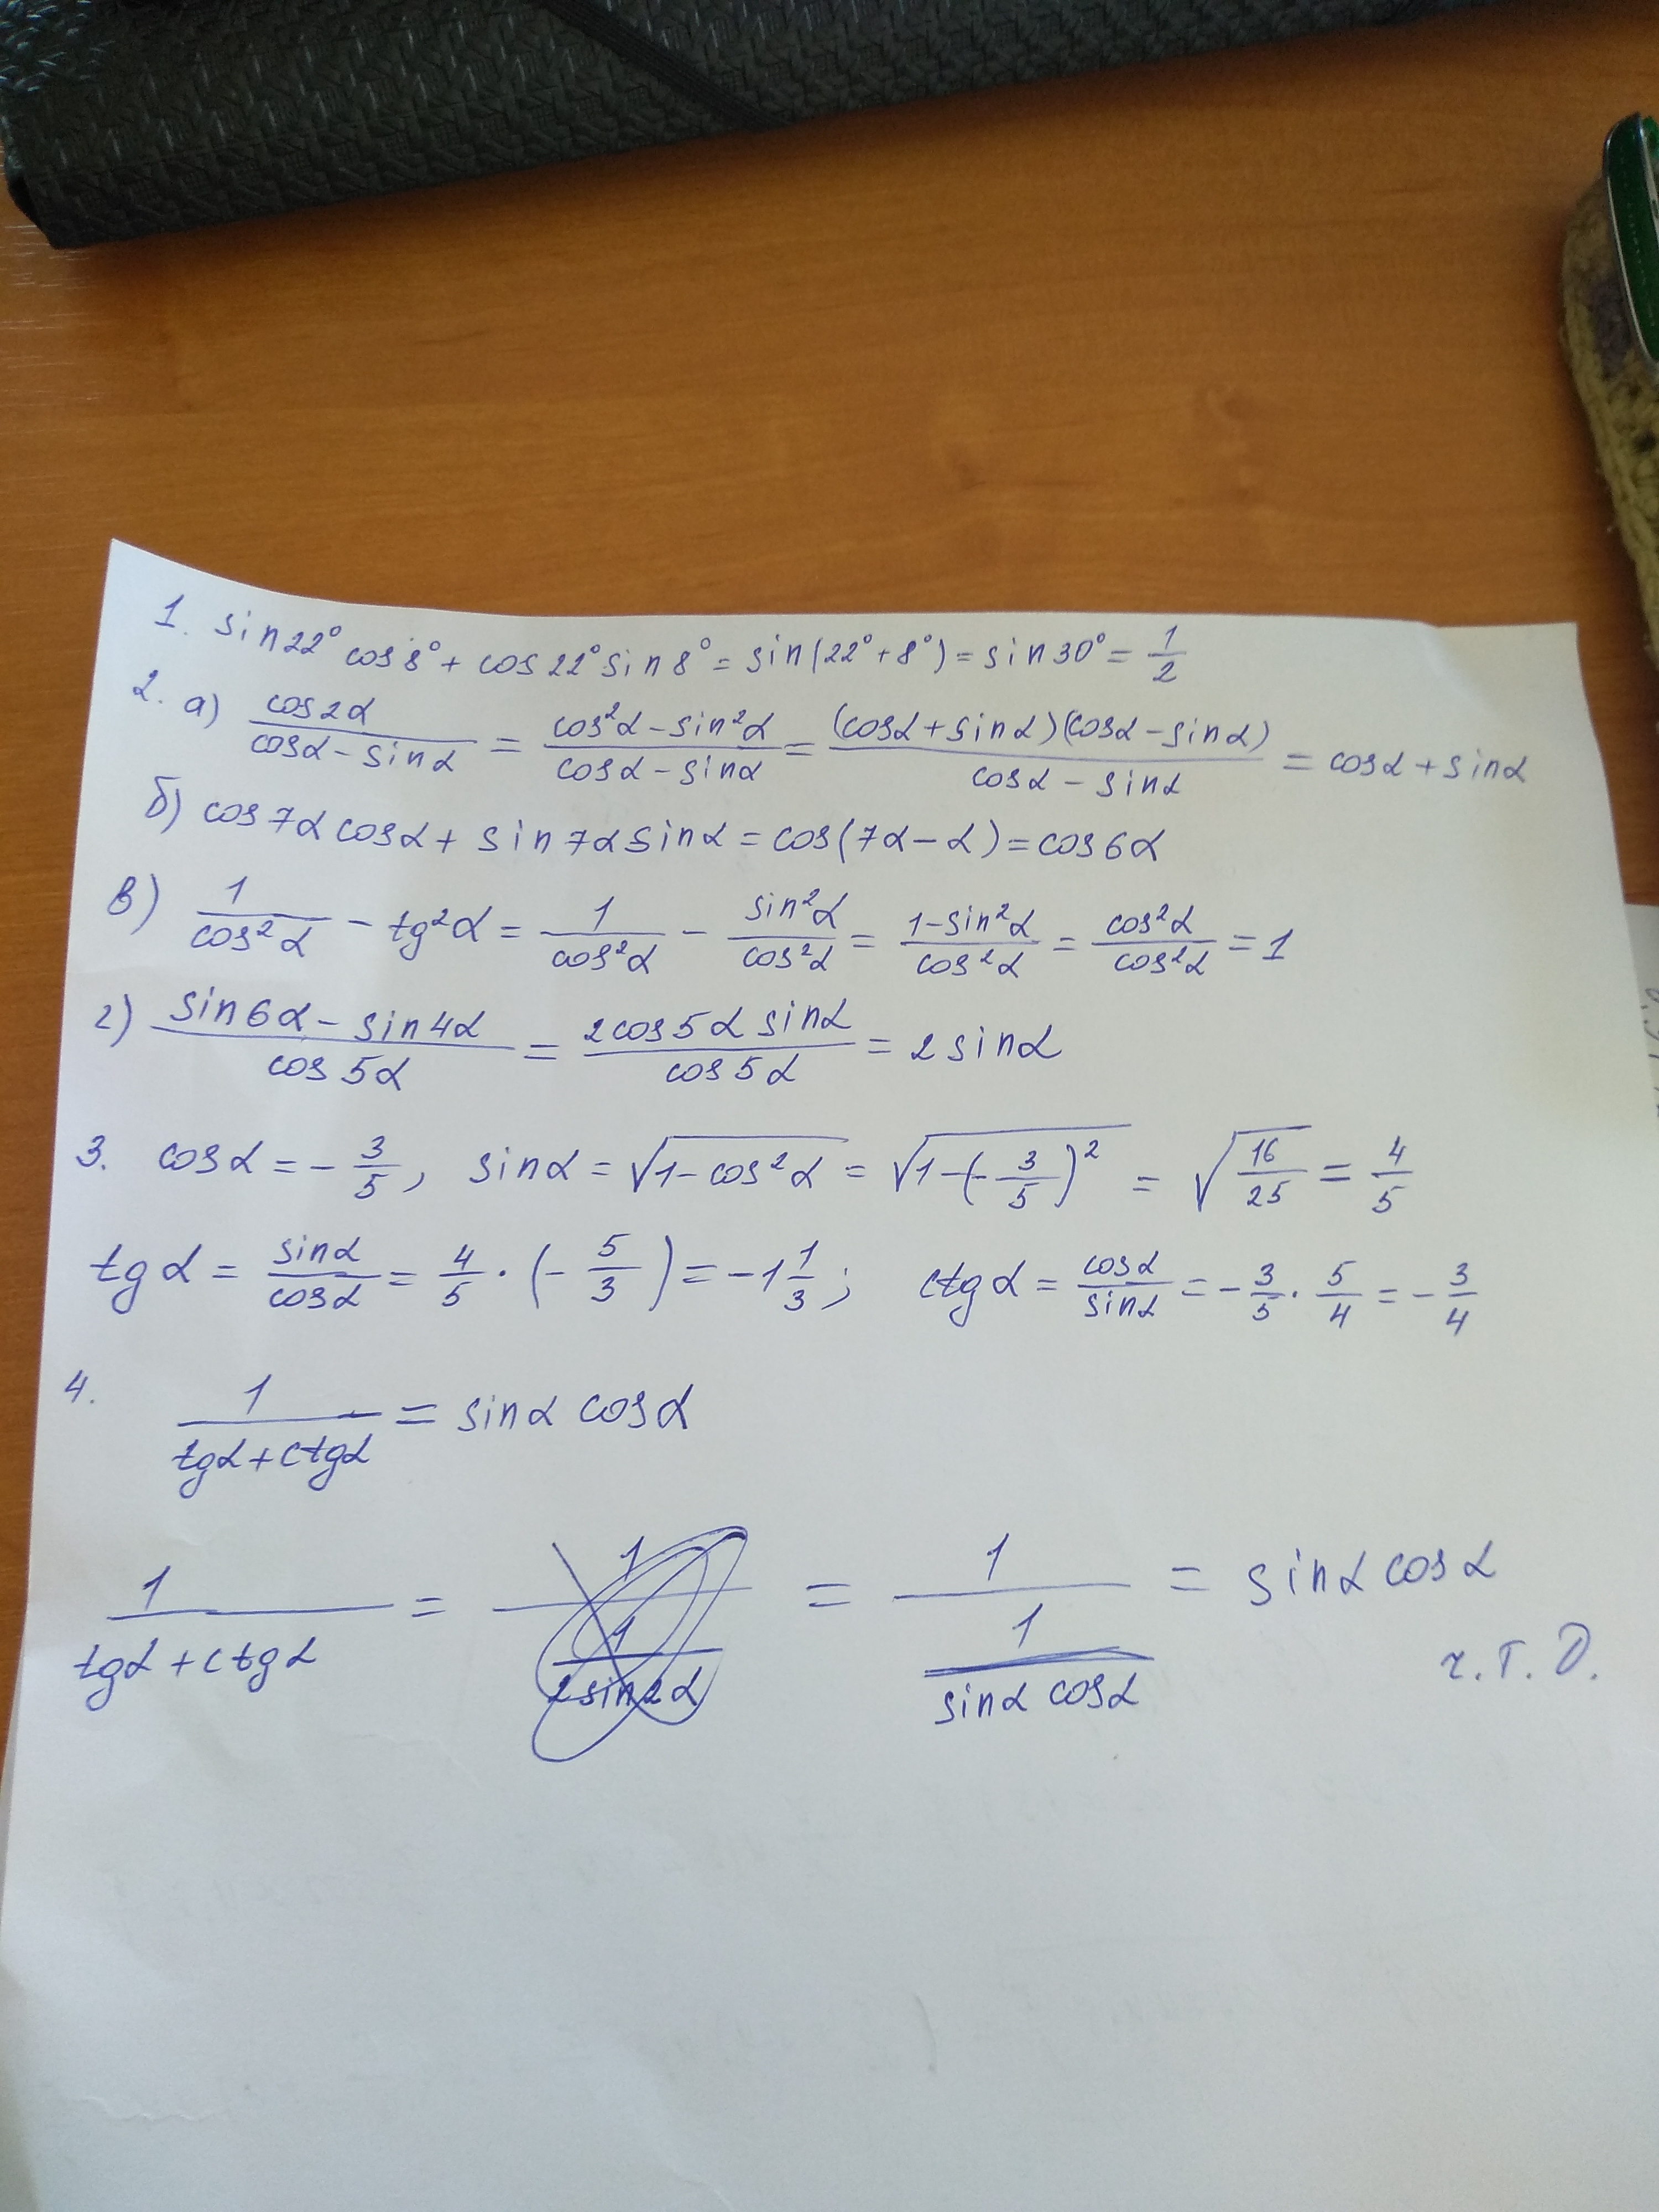 1. sin22° cos8° + cos22° sin8° = sin(22°+8°) = sin30° = 1/2
2. а) cos2α/(cosα - sinα) = (cos²α - sin²α)/(cosα - sinα) = (cosα + sinα)(cosα - sinα)/(cosα - sinα) = cosα + sinα
б) cos7α cosα + sin7α sinα = cos(7α - α) = cos6α
в) 1/cos²α - tg²α = 1/cos²α - sin²α/cos²α = (1 - sin²α)/cos²α = cos²α/cos²α = 1
г) (sin6α - sin4α)/cos5α = 2cos5α sinα/cos5α = 2 sinα
3. cosα = -3/5, sinα = √(1 - cos²α) = √(1-(-3/5)²) = √(16/25) = 4/5
tgα = sinα/cosα = 4/5 · (-5/3) = -1 1/3; ctgα = cosα/sinα = -3/5 · 5/4 = -3/4
4. 1/(tgα + ctgα) = sinα cosα
1/(tgα + ctgα) = 1/(1/(2sin2α)) = 1/(1/(sinα cosα)) = sinα cosα
ч.т.д.